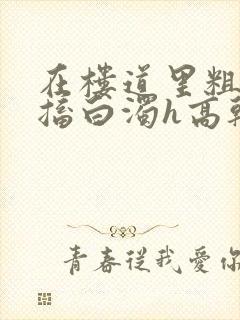 在楼道里粗
擂白濁h高
青春從我愛你